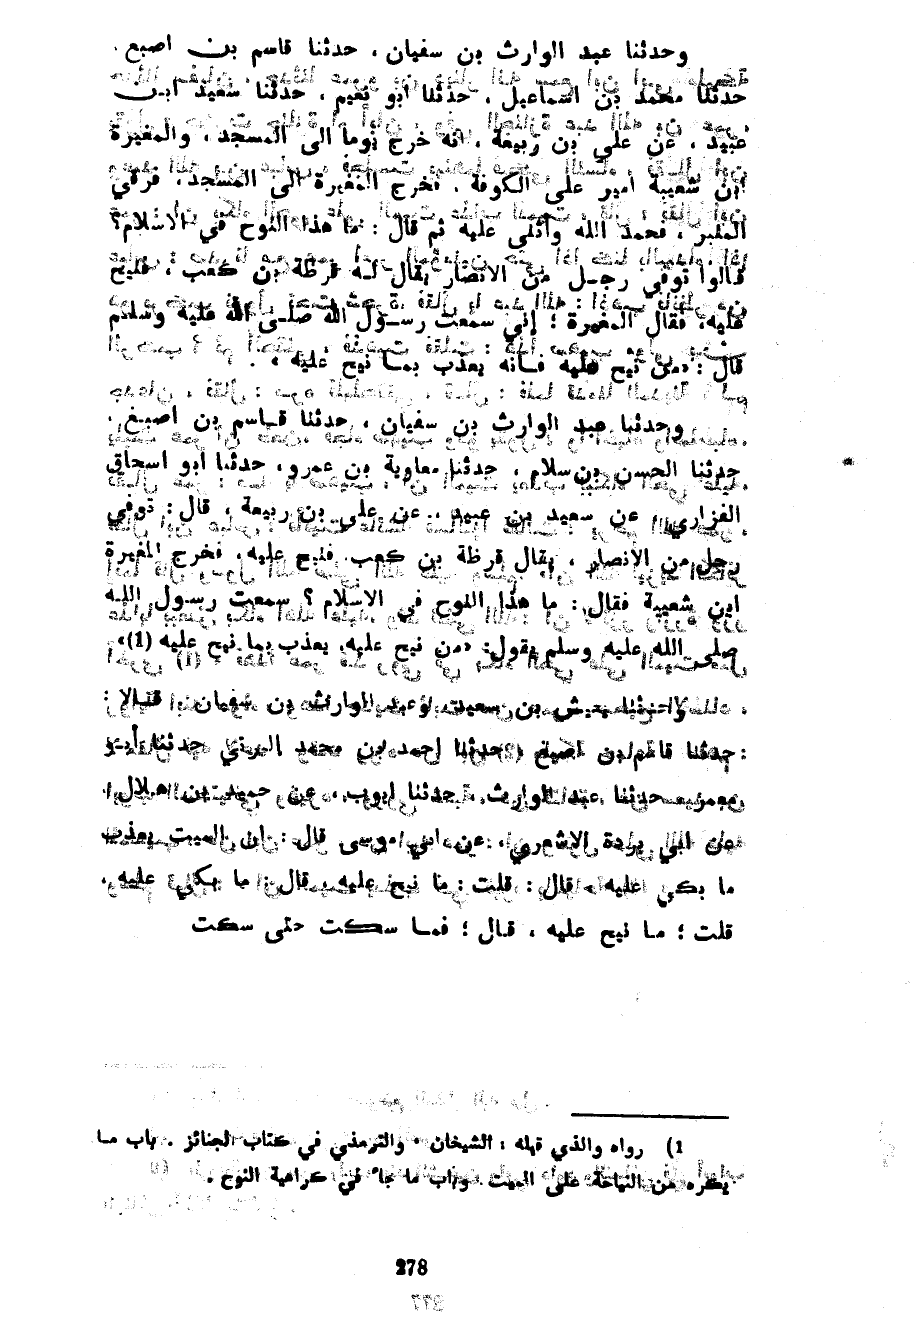 وحدثنا عبد الوارث بن سفيان ، حدثنا قاسم بن اصبغ .
حدثنا محمد بن اسماعيل ، حدثنا ابو نعيم ، حدثنا سعيد ابن
عبيد ، عن علي بن ربيعة ، انه خرج يوما الى المسجد ، والمغيرة
ابن شعيبة امير على الكوفة ، فخرج المغيرة الى المسجد، فرقي
المنبر ، فحمد الله وأثنى عليه ثم قال : ما هذا النوح في الاسلام؟
قالوا توفي رجل من الانصار يقال له قرظة بن كعب ، فنيح
عليه، فقال المغيرة ؛ إني سمعت رسول الله صلى الله عليه وسلم
قال : «من نيح عليه فانه يعذب بما نيح عليه » .
وحدثنا عبد الوارث بن سفيان ، حدثنا قاسم بن اصبغ .
حدثنا الحسن بن سلام ، حدثنا معاوية بن عمرو، حدثنا ابو اسحاق
الفزاري ، عن سعيد بن عبيد ، عن علي بن ربيعة ، قال : توفي
رجل من الانصار ، يقال قرظة بن كعب. فنيح عليه، فخرج المغيرة
ابن شعيبة فقال : ما هذا النوح في الاسلام ؟ سمعت رسول الله
صلى الله عليه وسلم يقول: «من نيح عليه، يعذب بما نيح عليه (1)»
يعيش بن سعيد وعبد الوارث بن سفيان قالا :
حدثنا قاسم بن اصبغ حدثنا احمد بن محمد البرتي حدثنا أبو
معمر حدثنا عبد الوارث حدثنا ايوب ، عن حميد بن هلال
عن ابي بردة الاشعري ، عن ابي موسى قال : ان الميت يعذب
ما بكي عليه ، قال : قلت : ما نيح عليه ، قال : ما بكي عليه ،
قلت ؛ ما نيح عليه ، قال ؛ فما سكت حتى سكت
1) رواه والذي قبله : الشيخان والترمذي في كتاب الجنائز . باب ما
يكره من النياحة على الميت وباب ما جاء في كراهية النوح .
278